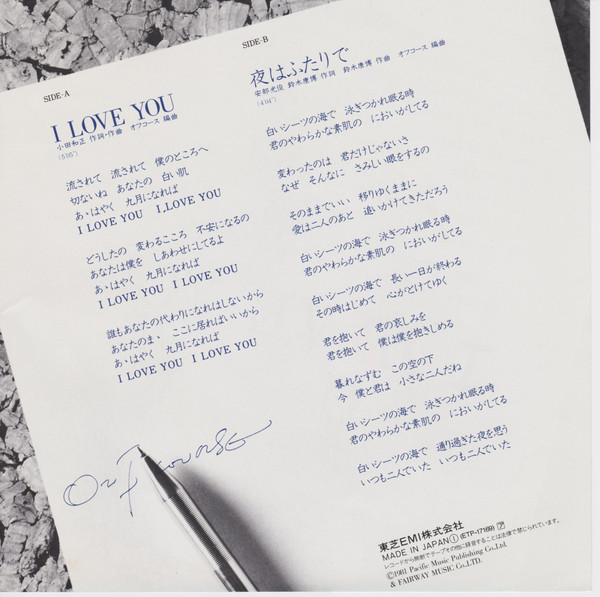 SIDE-A
I LOVE YOU
小田和正 作詞・作曲 オフコース 編曲
(5'05")
流されて 流されて 僕のところへ
切ないね あなたの 白い肌
あゝはやく 九月になれば
I LOVE YOU I, LOVE YOU
どうしたの 変わるこころ 不安になるの
あなたは僕を しあわせにしてるよ
あゝはやく 九月になれば
I LOVE YOU I LOVE YOU
誰もあなたの代わりになれはしないから
あなたのまゝ ここに居ればいいから
あゝはやく 九月になれば
I LOVE YOU I LOVE YOU
SIDE-B
夜はふたりで
安部光俊 鈴木康博 作詞 鈴木康博 作曲 オフコース 編曲
(4'04")
白いシーツの海で 泳ぎつかれ眠る時
君のやわらかな素肌の においがしてる
変わったのは 君だけじゃないさ
なぜ そんなに さみしい眼をするの
そのままでいい 移りゆくままに
愛は二人のあと 追いかけてきただろう
白いシーツの海で 泳ぎつかれ眠る時
君のやわらかな素肌の においがしてる
白いシーツの海で 長い一日が終わる
その時はじめて 心がとけてゆく
君を抱いて 君の哀しみを
君を抱いて 僕は僕を抱きしめる
暮れなずむ この空の下
今 僕と君は 小さな二人だね
白いシーツの海で 泳ぎつかれ眠る時
君のやわらかな素肌の においがしてる
白いシーツの海で 通り過ぎた夜を思う
いつも二人でいた いつも二人でいた
OFF COURSE
東芝EMI株式会社
MADE IN JAPAN Ⓘ (ETP-17169) ㋐
レコードから無断でテープその他に録音することは法律で禁じられています。
©1981 Pacific Music Publishing Co.,Ltd.
& FAIRWAY MUSIC Co.,LTD.